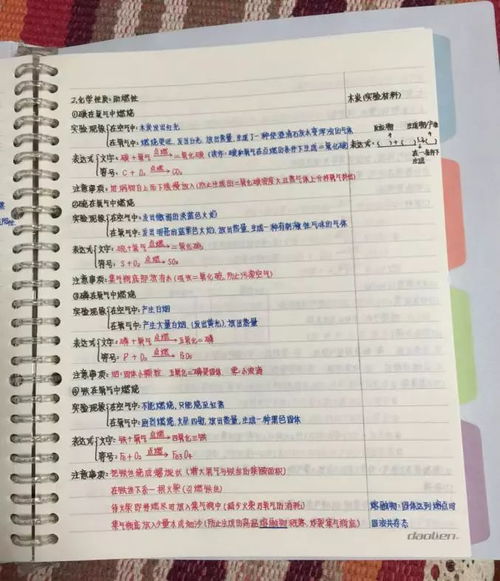 2.化学性质:助燃性
①碳在氧气中燃烧 木炭(实验材料)
实验现象 在空气中:木炭发出红光
在氧气中:燃烧更旺,发出白光,放出热量,生成了一种使澄清石灰水变浑浊的气体
反应物 生成物
表达式 文字:碳+氧气 点燃→ 二氧化碳 (读作:碳和氧气在点燃的条件下生成二氧化碳) 表达式:
符号:C + O₂ 点燃→ CO₂ 在一条件下
生成
注意事项:
②硫在氧气中燃烧
实验现象 在空气中:发出微弱的淡蓝色火焰
在氧气中:发出明亮的蓝紫色火焰,放出热量,生成一种有刺激性气味的气体
表达式 文字:硫+氧气 点燃→ 二氧化硫
符号:S + O₂ 点燃→ SO₂
注意事项:集气瓶底部放有水(吸收二氧化硫,防止污染空气)
③磷在氧气中燃烧
实验现象 在空气中:产生白烟
在氧气中:产生大量白烟,(发出黄光),放出热量
表达式 文字:磷+氧气 点燃→ 五氧化二磷
符号:P + O₂ 点燃→ P₂O₅
注意事项:烟:固体小颗粒 五氧化二磷是固体
④铁在氧气中燃烧
实验现象 在空气中:不能燃烧,只能烧至红热
在氧气中:剧烈燃烧,火星四射,放出热量,生成一种黑色固体
表达式 文字:铁+氧气 点燃→ 四氧化三铁
符号:Fe + O₂ 点燃→ Fe₃O₄
注意事项:把铁丝绕成螺旋状(增大氧气与铁丝的接触面积)
在铁丝下系一根火柴(引燃铁丝)
待火柴即将燃尽时放入集气瓶中(减少火柴对氧气的消耗) 熔融物:固体达到熔点时
集气瓶底放入少量水或细沙(防止生成的高温熔融物溅落,炸裂集气瓶底) 固液共存态
daolen